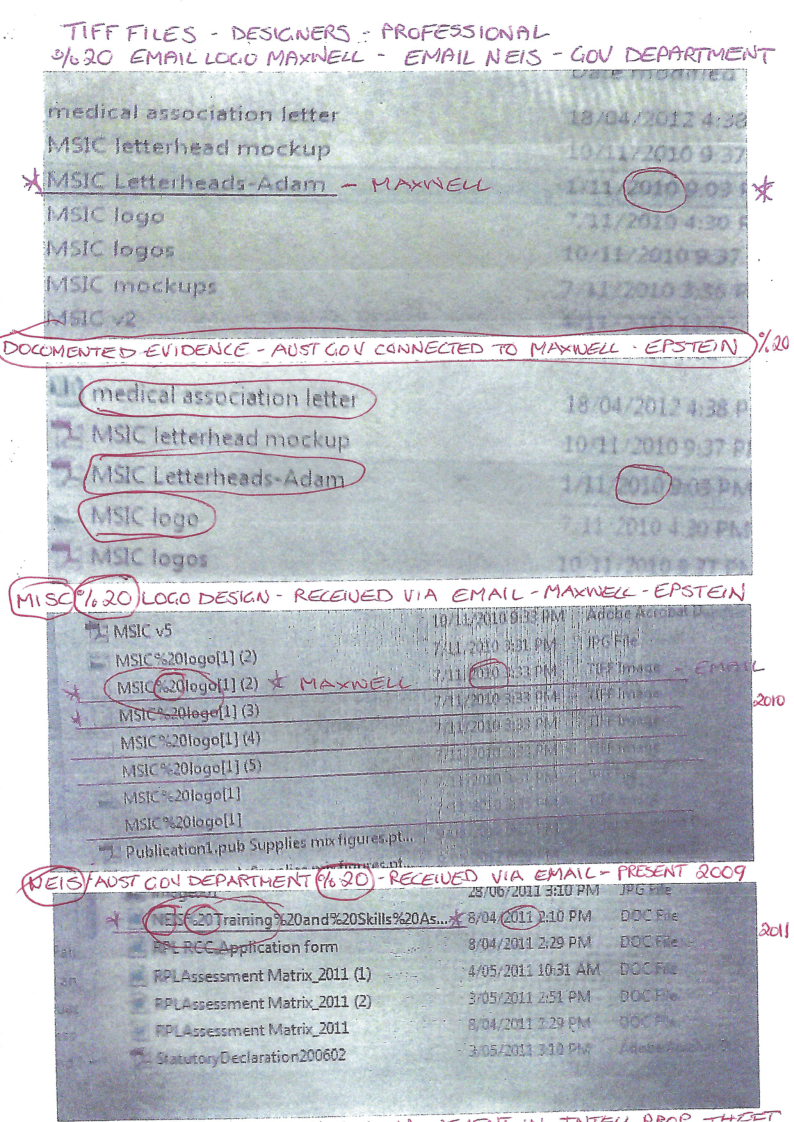 TIFF FILES - DESIGNERS - PROFESSIONAL
%20 EMAIL LOGO MAXWELL - EMAIL NEIS - GOV DEPARTMENT
Date modified
medical association letter 18/04/2012 4:38
MSIC letterhead mockup 10/11/2010 9:37
* MSIC Letterheads-Adam - MAXWELL 1/11/2010 9:03 P *
MSIC logo 7/11/2010 4:30 P
MSIC logos 10/11/2010 9:37
MSIC mockups 7/11/2010 3:36 P
MSIC v2
DOCUMENTED EVIDENCE - AUST GOV CONNECTED TO MAXWELL - EPSTEIN %20
medical association letter 18/04/2012 4:38 P
MSIC letterhead mockup 10/11/2010 9:37 PM
MSIC Letterheads-Adam 1/11/2010 9:03 PM
MSIC logo 7/11/2010 4:30 PM
MSIC logos 10/11/2010 9:37 PM
MISC %20 LOGO DESIGN - RECEIVED VIA EMAIL - MAXWELL - EPSTEIN
MSIC v5 10/11/2010 9:33 PM Adobe Acrobat D
MSIC%20logo[1] (2) 7/11/2010 3:31 PM JPG File
* MSIC%20logo[1] (2) * MAXWELL 7/11/2010 3:33 PM TIFF Image - EMAIL
* MSIC%20logo[1] (3) 7/11/2010 3:33 PM TIFF Image 2010
MSIC%20logo[1] (4) 7/11/2010 3:33 PM TIFF Image
MSIC%20logo[1] (5) 7/11/2010 3:33 PM TIFF Image
MSIC%20logo[1]
MSIC%20logo[1]
Publication1.pub Supplies mix figures.pt...
NEIS/AUST GOV DEPARTMENT %20 - RECEIVED VIA EMAIL - PRESENT 2009
28/06/2011 3:10 PM JPG File
* NEIS%20Training%20and%20Skills%20As... * 8/04/2011 2:10 PM DOC File 2011
RPL RCC Application form 8/04/2011 2:29 PM DOC File
RPLAssessment Matrix_2011 (1) 4/05/2011 10:31 AM DOC File
RPLAssessment Matrix_2011 (2) 3/05/2011 2:51 PM DOC File
RPLAssessment Matrix_2011 8/04/2011 2:29 PM DOC File
StatutoryDeclaration200602 3/05/2011 3:10 PM Adobe Acrobat
IN INTELL PROP THEFT